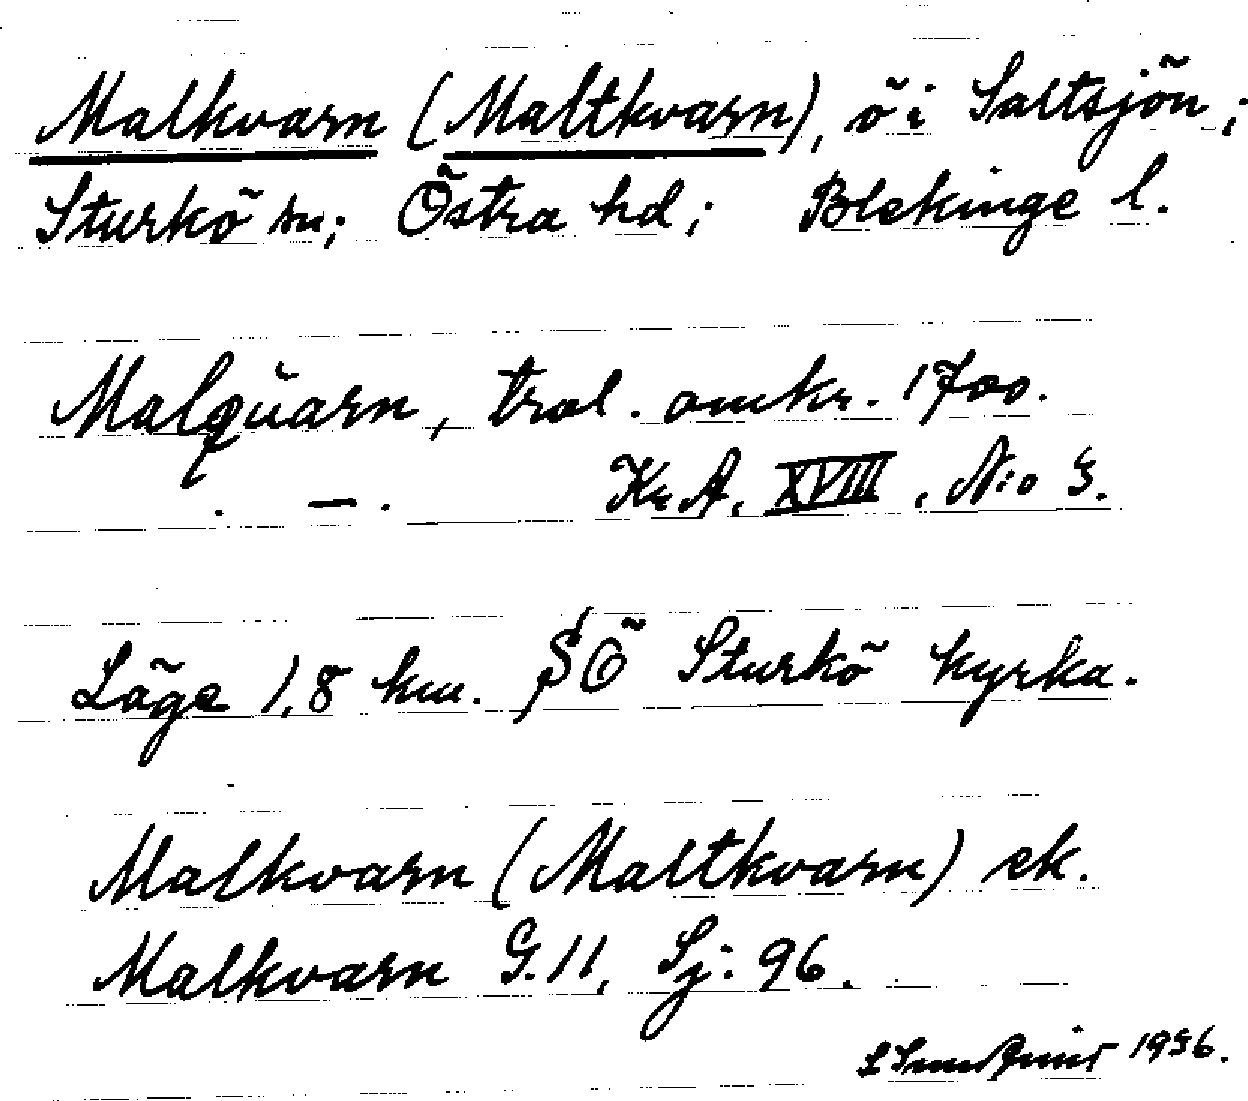 Malkvarn (Maltkvarn), ö i Saltsjön;
Sturkö sn; Östra hd; Blekinge l.
Malquarn, trol. omkr. 1700.
. — . Kr.A, XVIII, N:o 3.
Läge 1,8 km. SÖ Sturkö kyrka.
Malkvarn (Maltkvarn) ek.
Malkvarn G.11, Sj: 96.
1956.